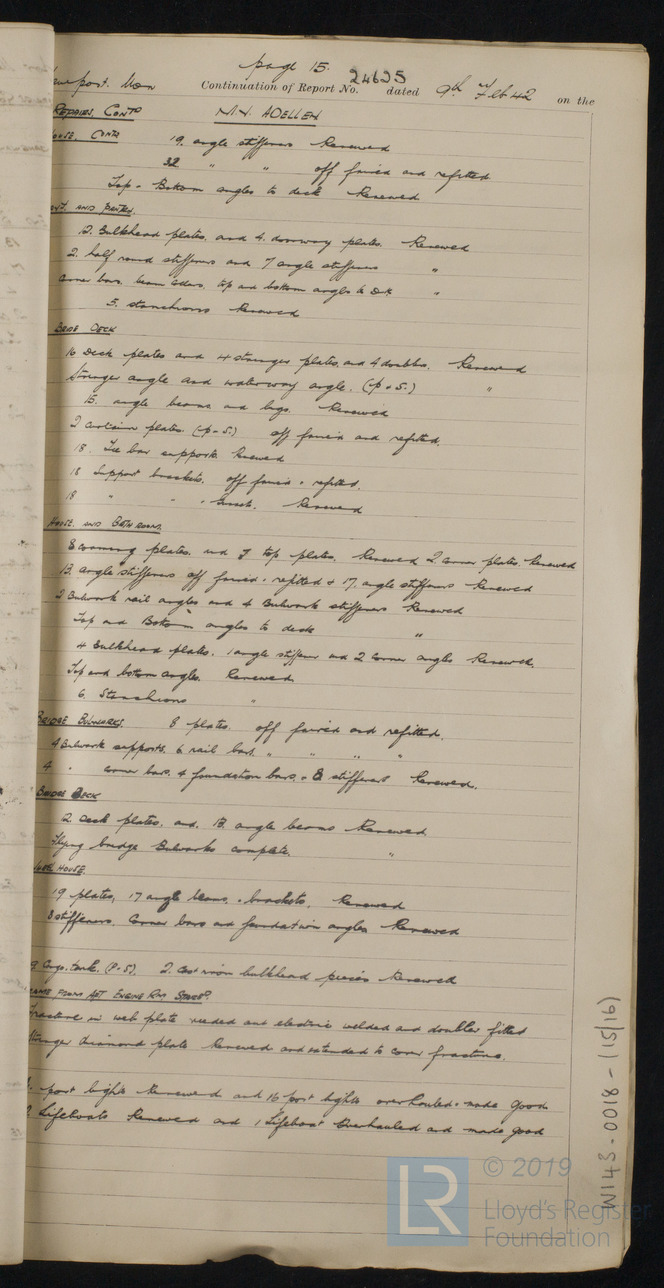 page 15.
port. Mon Continuation of Report No. 24625 dated 9th Feb 42 on the
Repairs, Contd M.V. ADELLEN
House, Contd
19. angle stiffeners Renewed
32 " " off faired and refitted
Top & Bottom angles to deck Renewed
and Pantry.
12. Bulkhead plates. and 4. doorway plates. Renewed
2. half round stiffeners and 7 angle stiffeners "
Corner bars. beam top and bottom angles to Deck "
5. stanchions Renewed
Deck
16 Deck plates and 4 stringer plates, and 4 doubles. Renewed
Stringer angle and waterway angle. (P & S.) "
15. angle beams and lugs. Renewed
2 curtain plates. (P & S.) off faired and refitted.
18. Tee bar supports. Renewed
18 Support brackets. off faired & refitted.
18 " " Renewed
House. and Bath rooms.
8 plates. and 7 top plates. Renewed 2 corner plates. Renewed
13. angle stiffeners off faired & refitted & 17. angle stiffeners Renewed
2 Bulwark rail angles and 4 Bulwark stiffeners Renewed
Top and Bottom angles to deck "
4 Bulkhead plates. 1 angle stiffener and 2 Corner angles Renewed.
Top and bottom angles. Renewed
6. Stanchions "
Bridge Bulwarks. 8 plates. off faired and refitted.
4 Bulwark supports. 6 rail bars. " " " "
4 " corner bars. 4 foundation bars. & 8 stiffeners Renewed.
Bridge Deck
2. deck plates. and. 13. angle beams Renewed
Flying bridge Bulwarks complete. "
House.
19 plates, 17 angle beams. & brackets. Renewed
8 stiffeners. Corner bars and foundation angles Renewed
9 Cargo. tank. (P & S). 2. Cast iron bulkhead pieces Renewed
Frame from Aft Engine Rm
Fracture in web plate veeded and electric welded and doubler fitted
Stringer diamond plate Renewed and extended to cover fracture.
port lights Renewed and 16 port lights overhauled & made good
2 Lifeboats Renewed and 1 Lifeboat Overhauled and made good
W143-0018-(15/16)
LR
© 2019
Lloyd's Register
Foundation